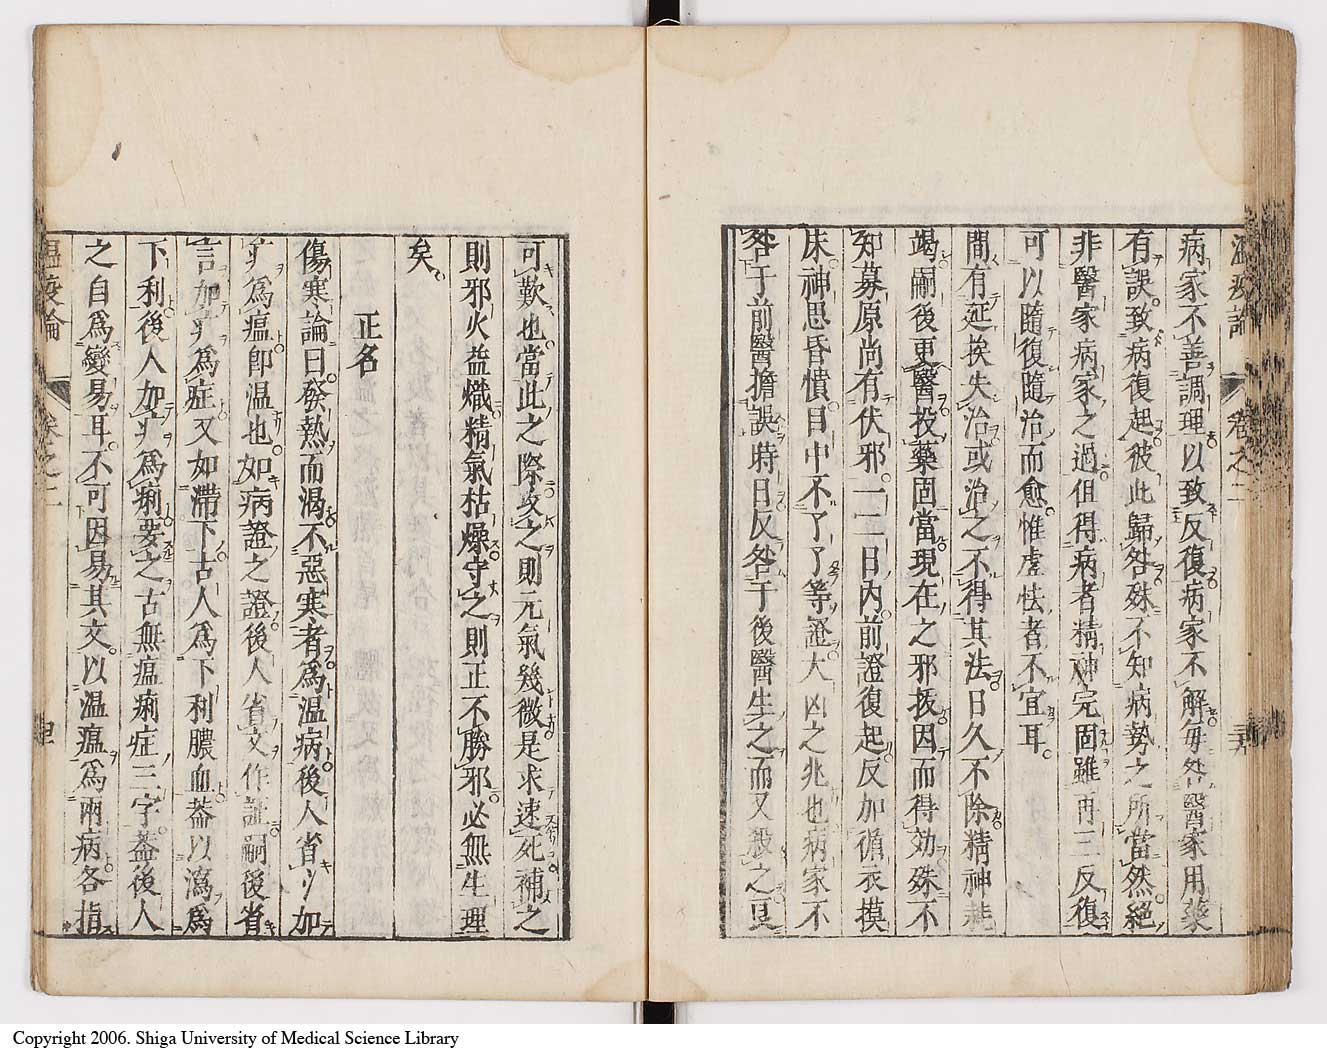 温疫論 卷之二
病家不善調理以致反復病家不解每咎醫家用藥
有誤致病復起彼此歸咎殊不知病勢之所當然絕
非醫家病家之過但得病者精神完固雖再三反復
可以隨復隨治而愈惟虛怯者不宜耳
間有延挨失治或治之不得其法日久不除精神耗
竭嗣後更醫投藥固當現在之邪拔因而得効殊不
知募原尚有伏邪一二日内前證復起反加循衣摸
床神思昏憒目中不了了等證大凶之兆也病家不
咎于前醫擔誤時日反咎于後醫生之而又殺之良
可歎也當此之際攻之則元氣幾微是求速死補之
則邪火益熾精氣枯燥守之則正不勝邪必無生理
矣
正名
傷寒論曰發熱而渴不惡寒者爲温病後人省氵加
疒爲瘟卽温也如病證之證後人省文作証嗣後省
言加疒爲症又如滯下古人爲下利膿血葢以瀉爲
下利後人加疒爲痢要之古無瘟痢症三字葢後人
之自爲變易耳不可因易其文以温瘟爲兩病各指
温疫論 卷之二
Copyright 2006. Shiga University of Medical Science Library